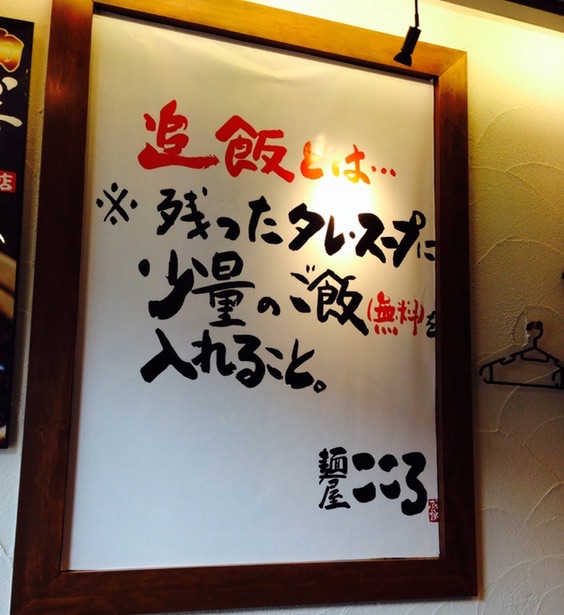 追飯とは…
※残ったタレ・スープに
少量のご飯(無料)を
入れること。
麺屋こころ
店